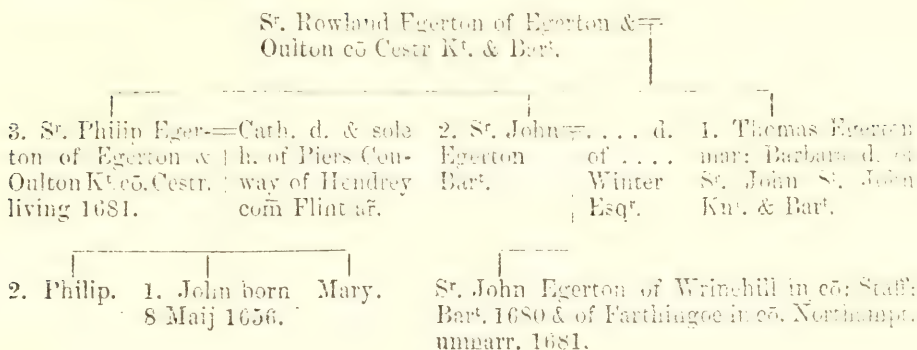 Sʳ. Rowland Egerton of Egerton &
Oulton cō Cestr Kᵗ. & Barᵗ.
3. Sʳ. Philip Eger-
ton of Egerton &
Oulton Kᵗ. cō. Cestr.
living 1681.
Cath. d. & sole
h. of Piers Con-
way of Hendrey
com̄ Flint ar̄.
2. Sʳ. John
Egerton
Barᵗ.
.... d.
of ....
Winter
Esqʳ.
1. Thomas Egerton
mar: Barbara d. of
Sʳ. John Sᵗ. John
Knᵗ. & Barᵗ.
2. Philip.
1. John born
8 Maij 1656.
Mary.
Sʳ. John Egerton of Wrinehill in cō: Staff:
Barᵗ. 1680 & of Farthingoe in cō. Northampt.
unmarr. 1681.